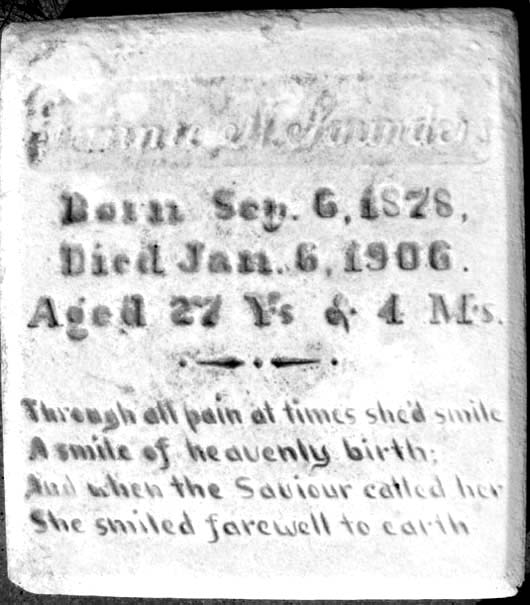 M. Saunders
Born Sep. 6, 1878,
Died Jan. 6, 1906.
Aged 27 Ys & 4 Ms.
Through all pain at times she'd smile
A smile of heavenly birth;
And when the Saviour called her
She smiled farewell to earth